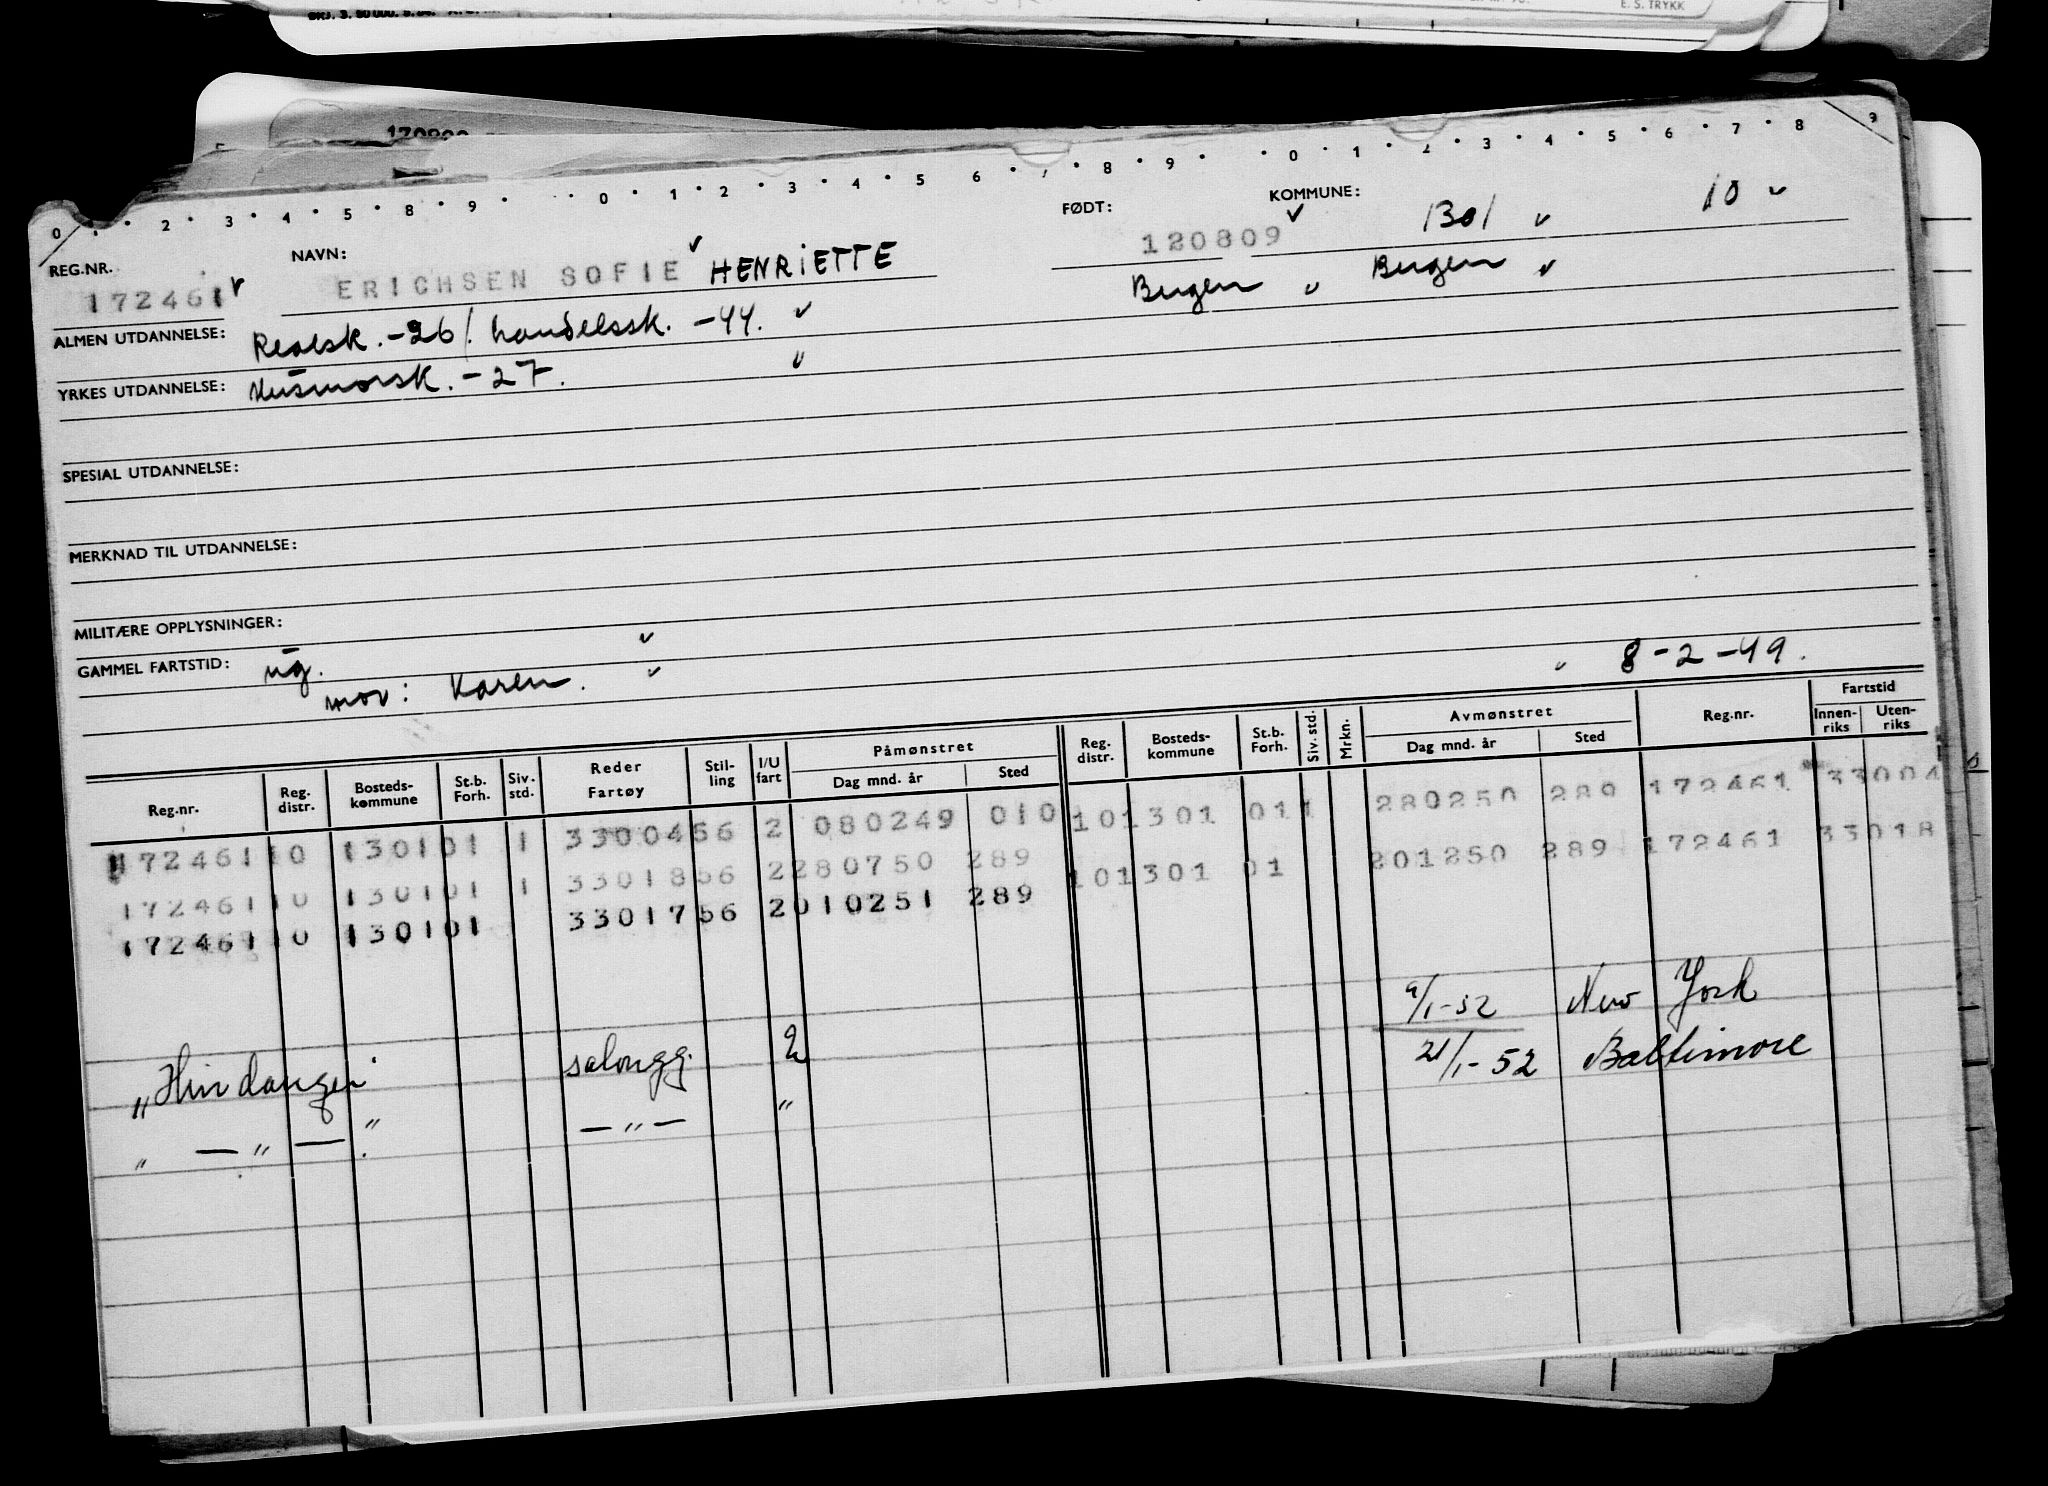 E. S. TRYKK
170809
0 1 2 3 4 5 8 9 0 1 2 3 4 5 6 7 8 9 0 1 2 3 4 5 6 7 8 9
REG.NR. NAVN: FØDT: KOMMUNE:
172461 ERICHSEN SOFIE HENRIETTE 120809 1301 10
Bergen Bergen
ALMEN UTDANNELSE: Realsk. -26/. handelssk. -44.
YRKES UTDANNELSE: Husmorsk. -27.
SPESIAL UTDANNELSE:
MERKNAD TIL UTDANNELSE:
MILITÆRE OPPLYSNINGER:
GAMMEL FARTSTID: ug.
mor: Karen. 8-2-49.
Reg.nr. Reg. distr. Bosteds-kommune St.b. Forh. Siv. std. Reder Fartøy Stil-ling I/U fart Påmønstret Dag mnd. år Sted Reg. distr. Bosteds-kommune St.b. Forh. Siv. std. Mrkn. Avmønstret Dag mnd. år Sted Reg.nr. Fartstid Innen-riks Uten-riks
172461 10 1301 01 1 33004 56 2 080249 010 10 1301 01 1 280250 289 172461 33004
172461 10 1301 01 1 33018 56 2 280750 289 10 1301 01 201250 289 172461 33018
172461 10 1301 01 33017 56 2 010251 289
9/1-52 New York
"Hindanger" salongg. 2 21/1-52 Baltimore
" — " — " — " — "